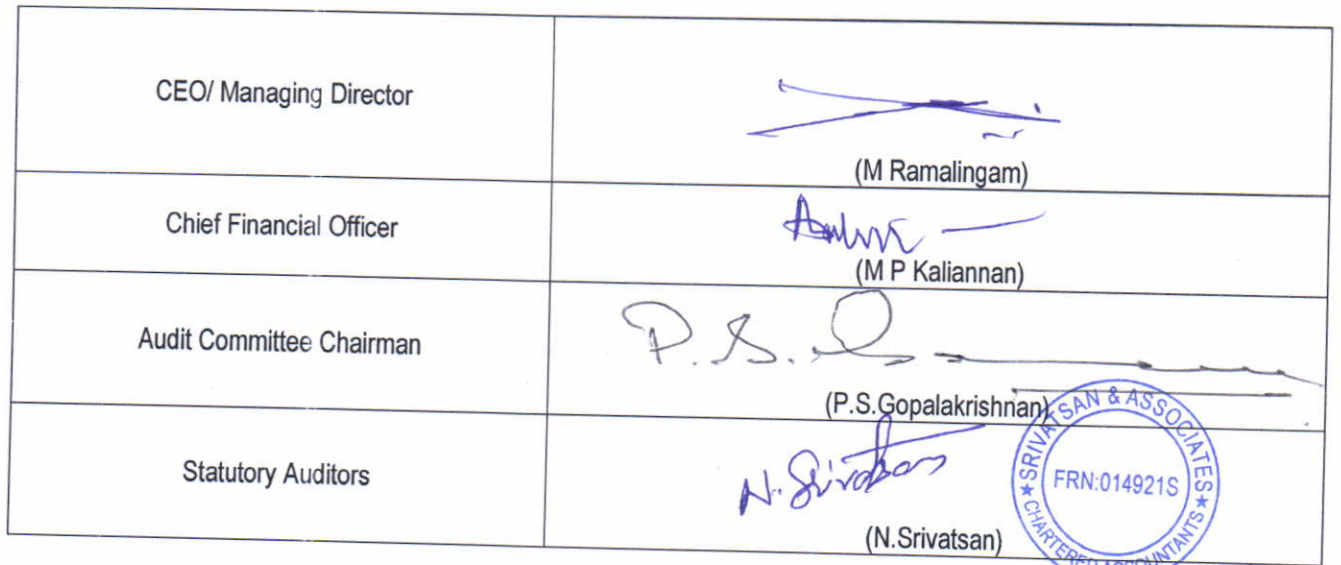 CEO/ Managing Director
(M Ramalingam)
Chief Financial Officer
(M P Kaliannan)
Audit Committee Chairman
P.S.
(P.S.Gopalakrishnan)
Statutory Auditors
N. Srivatsan
(N.Srivatsan)
SRIVATSAN & ASSOCIATES
FRN:014921S
★ CHARTERED ACCOUNTANTS ★